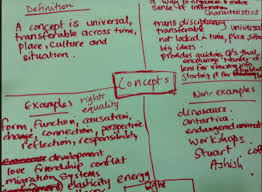 Definition
A concept is universal,
transferable across time,
place, culture and
situation.
a way to organise & make
sense of
characteristics
trans disciplinary
transferable universal
not locked in time, place
big ideas
provides guiding q's that
encourage
lens for
starting pt for
Concepts
Examples rights
equality
form, function, causation,
change, connection, perspective
reflection, responsibility
development
love friendship conflict
migration, systems
elasticity energy
Non-examples
dinosaurs
antartica
endangered animals
workshops
Stuart
Ashish